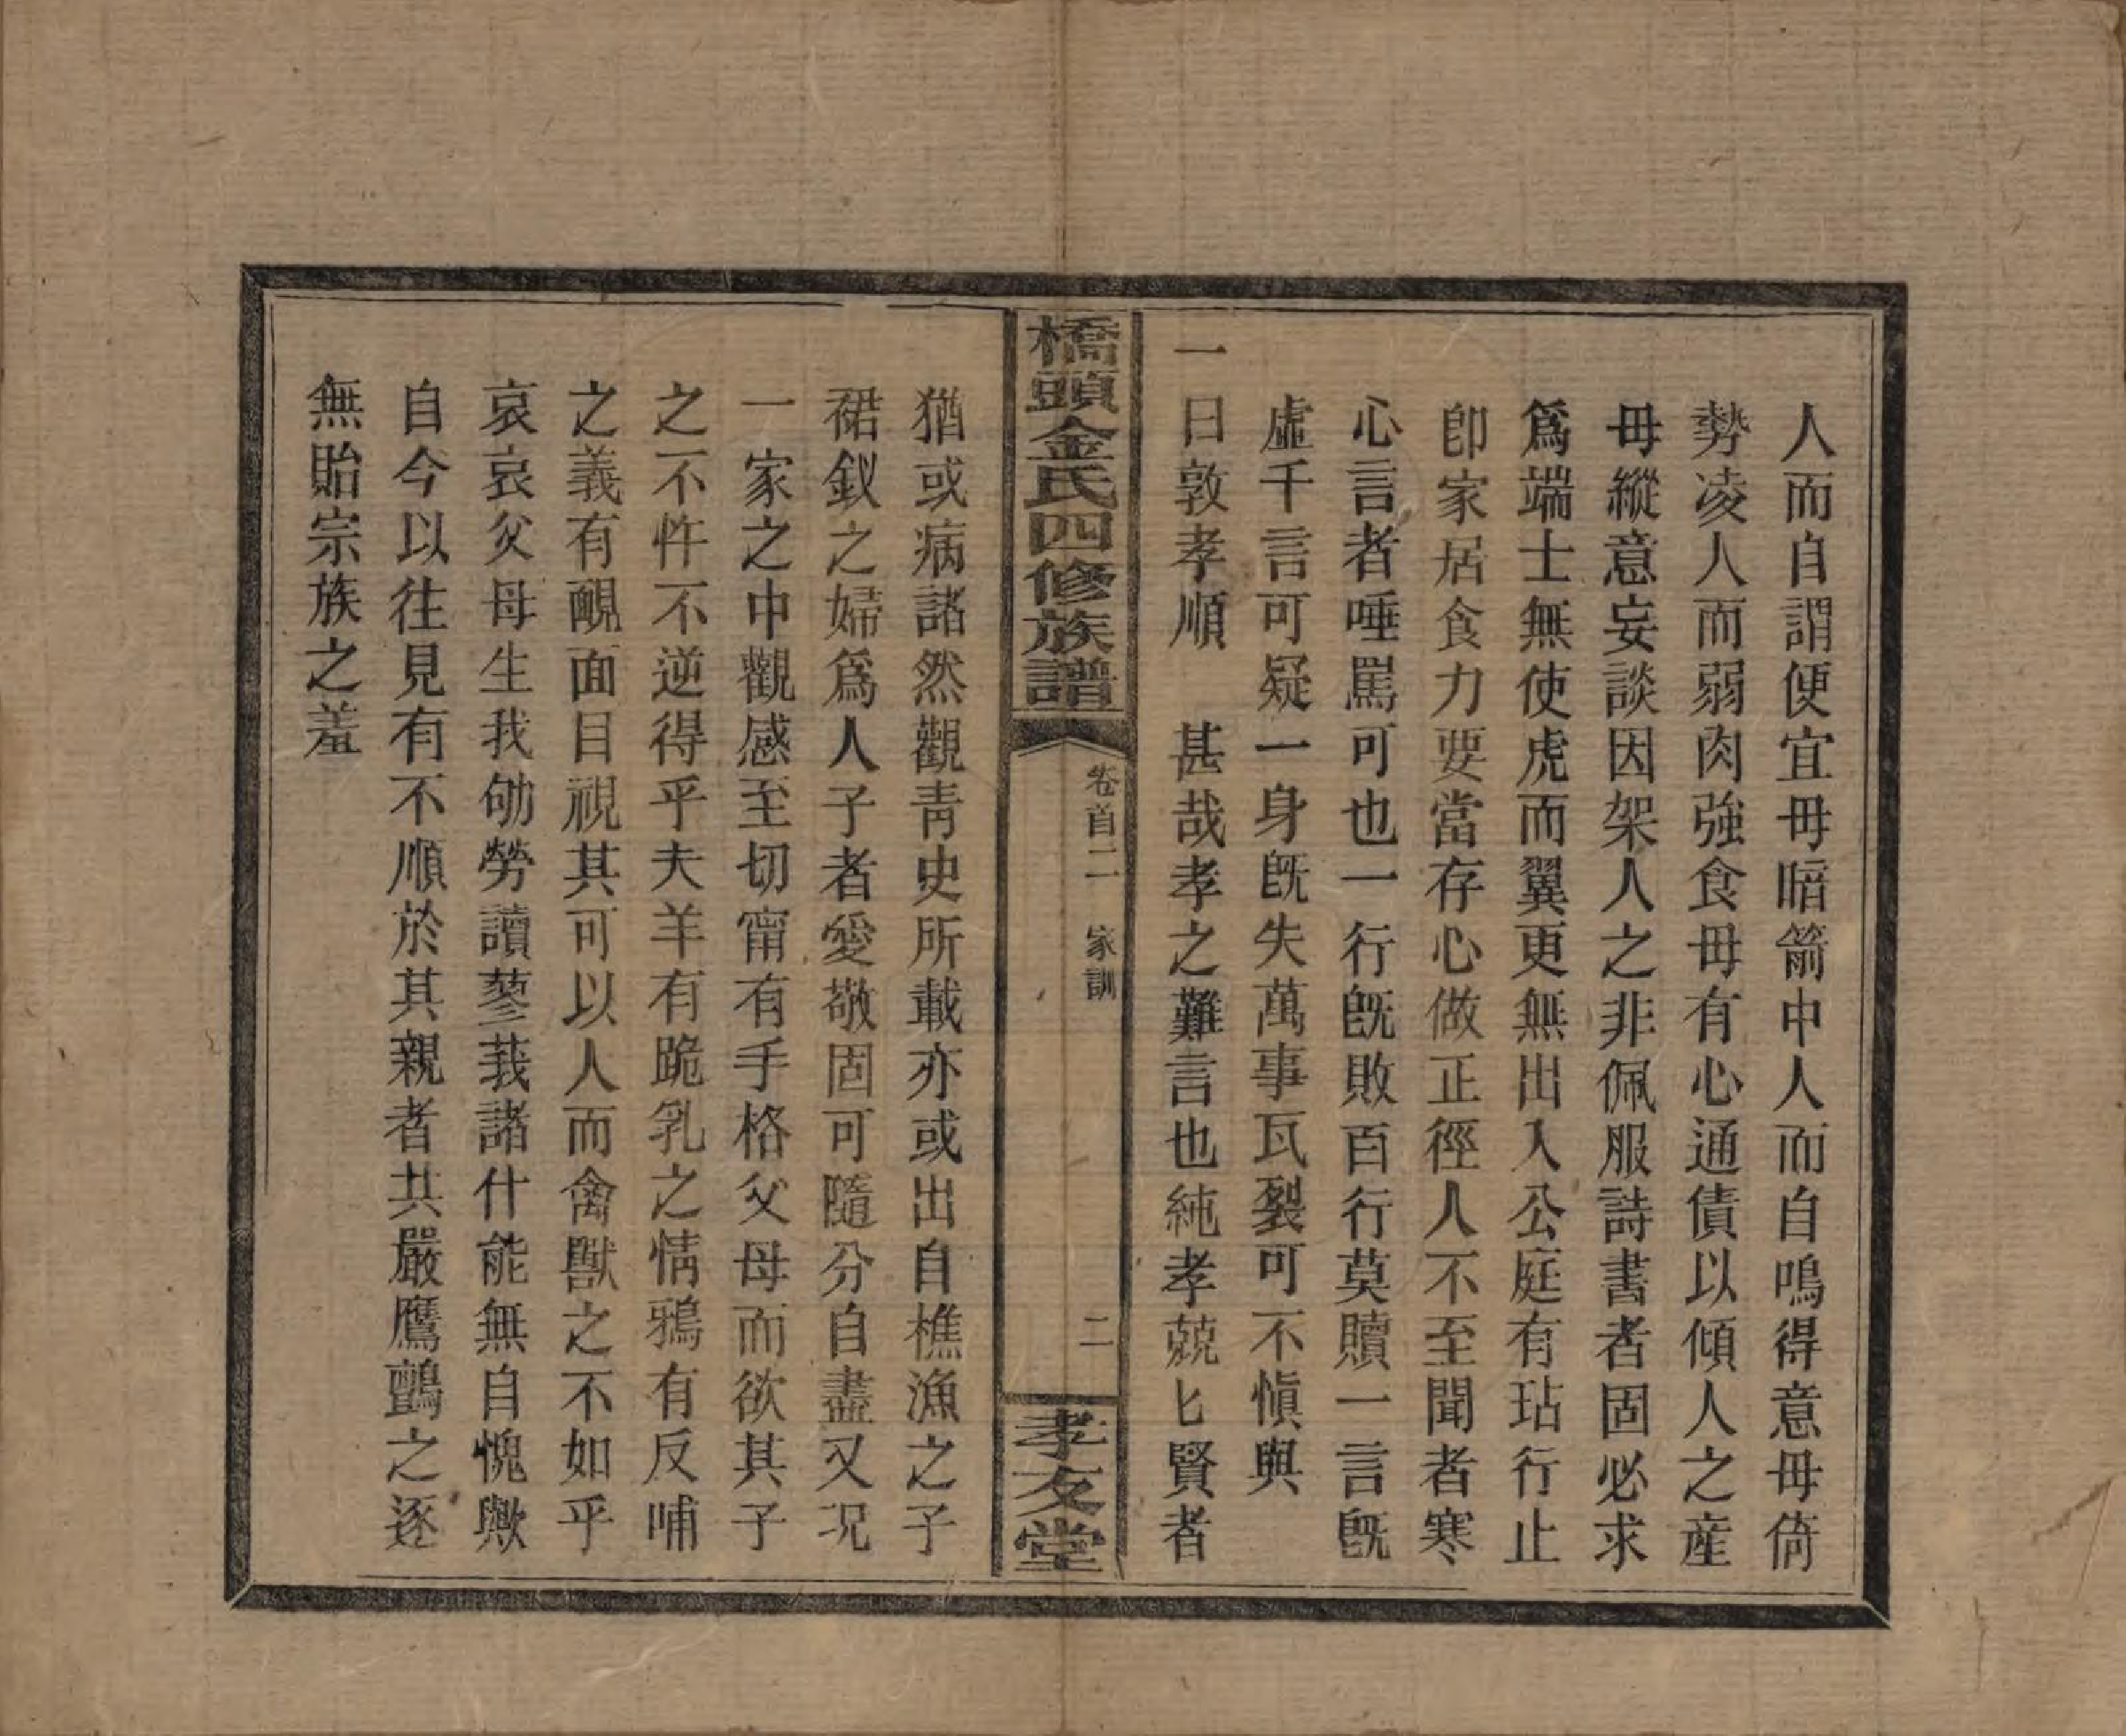 人而自謂便宜毋暗箭中人而自鳴得意毋倚
勢凌人而弱肉強食毋有心通債以傾人之產
毋縱意妄談因架人之非佩服詩書者固必求
爲端士無使虎而翼更無出入公庭有玷行止
卽家居食力要當存心做正徑人不至聞者寒
心言者唾罵可也一行旣敗百行莫贖一言旣
虛千言可疑一身旣失萬事瓦裂可不愼與
一曰敦孝順　甚哉孝之難言也純孝兢匕賢者
橋頭金氏四修族譜
卷首二　家訓
二
孝友堂
猶或病諸然觀靑史所載亦或出自樵漁之子
裙釵之婦爲人子者愛敬固可隨分自盡又况
一家之中觀感至切甯有手格父母而欲其子
之不忤不逆得乎夫羊有跪乳之情鴉有反哺
之義有靦面目視其可以人而禽獸之不如乎
哀哀父母生我劬勞讀蓼莪諸什能無自愧歟
自今以往見有不順於其親者共嚴鷹鸇之逐
無貽宗族之羞